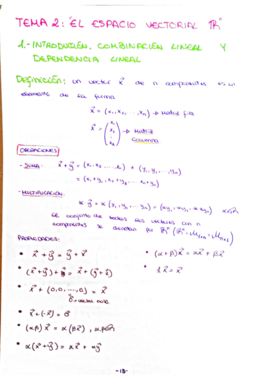 TEMA 2: EL ESPACIO VECTORIAL ℝⁿ
1.- INTRODUCCIÓN, COMBINACIÓN LINEAL Y
DEPENDENCIA LINEAL
Definición: un vector x⃗ de n componentes es un
elemento de la forma
x⃗ = (x₁, x₂, ..., xₙ) → Matriz fila
x⃗ = (x₁ x₂ ⋮ xₙ) → Matriz
columna
OPERACIONES
- SUMA: x⃗ + y⃗ = (x₁, x₂ ... xₙ) + (y₁, y₂ ... yₙ)
= (x₁+y₁, x₂+y₂ ... xₙ+yₙ)
- MULTIPLICACIÓN:
α y⃗ = α (y₁, y₂, ... yₙ) = (αy₁, αy₂, ... αyₙ) α∈ℝ
El conjunto de todos los vectores con n
componentes se denota por ℝⁿ
PROPIEDADES:
• x⃗ + y⃗ = y⃗ + x⃗
• (α+β) x⃗ = αx⃗ + βx⃗
• 1x⃗ = x⃗
• x⃗ + (0, 0, ..., 0) = x⃗
• x⃗ + (-x⃗) = 0⃗
• (αβ) x⃗ = α (βx⃗), αβ∈ℝ
• α(x⃗ + y⃗) = αx⃗ + αy⃗
-13-